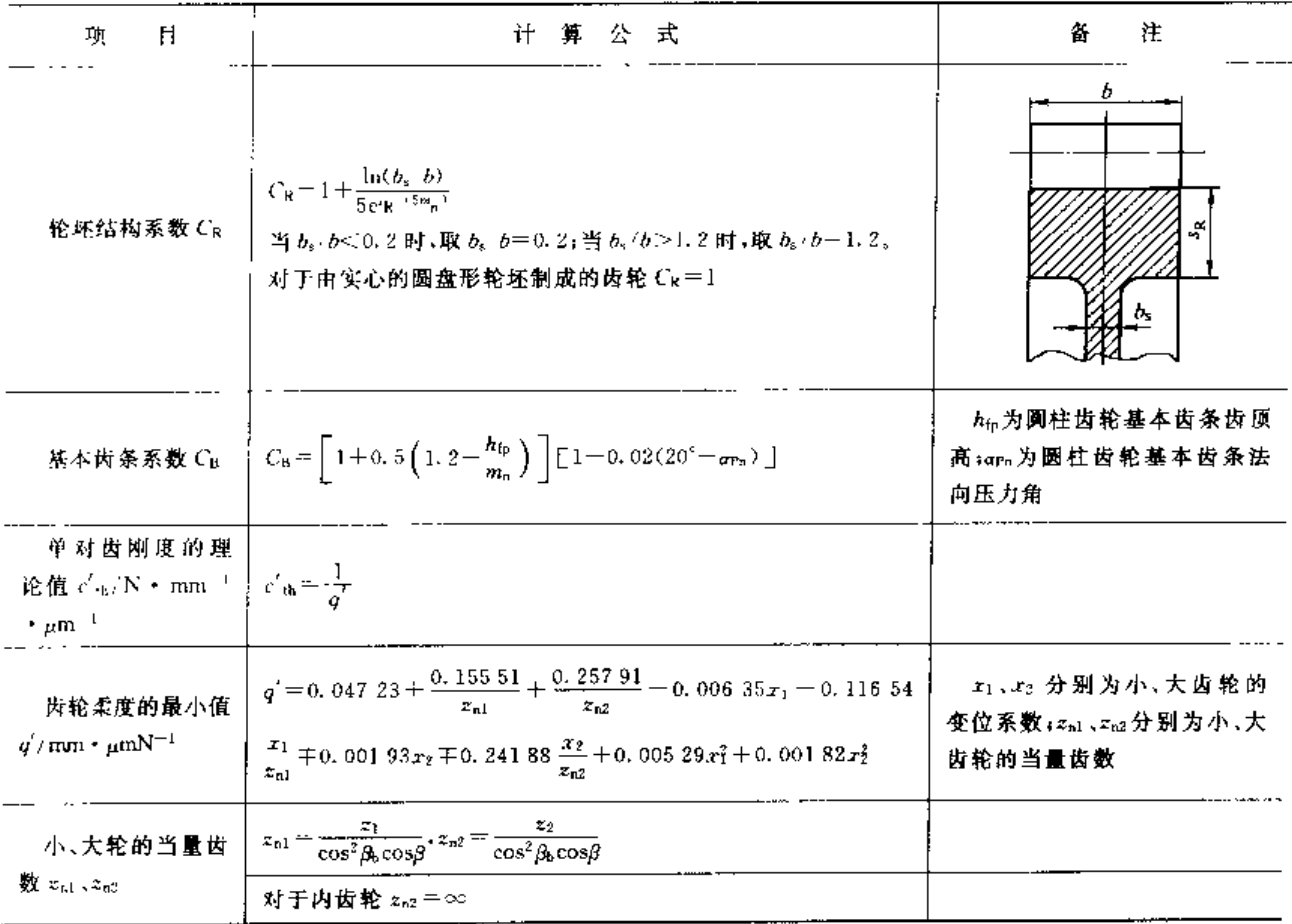 项 目 计 算 公 式 备 注
b
C_R=1+\frac{\ln(b_s/b)}{5e^{s_R/(5m_n)}}
轮坯结构系数 C_R
当 b_s/b<0.2 时,取 b_s/b=0.2;当 b_s/b>1.2 时,取 b_s/b=1.2。
对于由实心的圆盘形轮坯制成的齿轮 C_R=1
s_R
b_s
基本齿条系数 C_B
C_B=[1+0.5(1.2-\frac{h_{fp}}{m_n})][1-0.02(20°-α_{Pn})]
h_{fp}为圆柱齿轮基本齿条齿顶
高;α_{Pn}为圆柱齿轮基本齿条法
向压力角
单对齿刚度的理
论值 c'_{th}/N・mm^{-1}
・μm^{-1}
c'_{th}=\frac{1}{q'}
齿轮柔度的最小值
q'/mm・μmN^{-1}
q'=0.047 23+\frac{0.155 51}{z_{n1}}+\frac{0.257 91}{z_{n2}}-0.006 35x_1-0.116 54
\frac{x_1}{z_{n1}}∓0.001 93x_2∓0.241 88\frac{x_2}{z_{n2}}+0.005 29x_1^2+0.001 82x_2^2
x_1、x_2 分别为小、大齿轮的
变位系数;z_{n1}、z_{n2}分别为小、大
齿轮的当量齿数
小、大轮的当量齿
数 z_{n1}、z_{n2}
z_{n1}=\frac{z_1}{\cos^2β_b\cosβ},z_{n2}=\frac{z_2}{\cos^2β_b\cosβ}
对于内齿轮 z_{n2}=∞